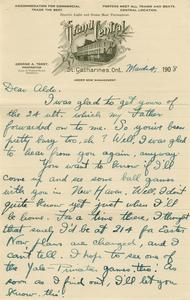 ACCOMMODATION FOR COMMERCIAL TRADE THE BEST.
PORTERS MEET ALL TRAINS AND BOATS. CENTRAL LOCATION.
Electric Light and Steam Heat Throughout.
Grand Central
GEORGE A. TROBY,
PROPRIETOR
St. Catharines, Ont.
March 4, 1908
UNDER NEW MANAGEMENT
Dear Aldo:
I was glad to get yours of
the 24 ult. which my Father
forwarded on to me. So you've been
pretty busy too, eh? Well, I was glad
to hear from you again, anyway.
You want to know if I'll
come up and see some ball games
with you in New Haven. Well, I don't
quite know yet just when I'll
be home. For a time there, I thought
that surely I'd be at 214 for Easter
Now plans are changed, and I
can't tell. I hope to see one
of the Yale-Princeton games, tho. As
soon as I find out, I'll let you
know, tho!